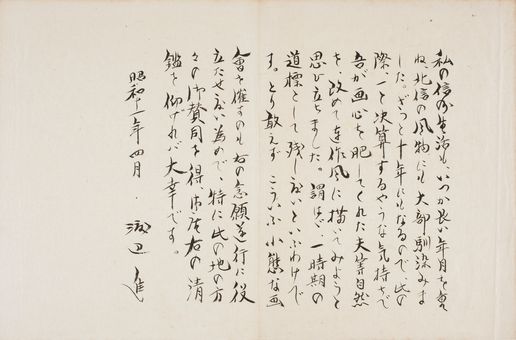 私の信州生活も、いつか長い年月を重
ね、北信の風物にも大部馴染みま
した。ざつと十年にもなるので、此の
際一と決算するやうな気持ちで
吾が画心を肥してくれた夫等自然
を、改めて連作風に描いてみようと
思ひ立ちました。謂はゞ、一時期の
道標として残し度いといふわけで
す。とり敢えず、こういふ小態な画
會を催すのも、右の念願遂行に役
立たせ度い為めで、特に此の地の方
々の御賛同を得、御座右の清
鑑を仰げれば大幸です。
昭和十一年四月
渡辺進